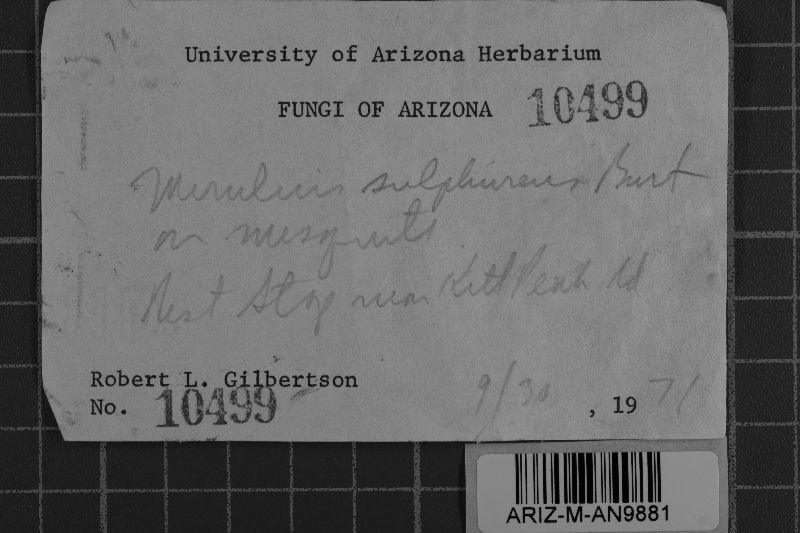 University of Arizona Herbarium
FUNGI OF ARIZONA 10499
Merulius sulphureus Burt
on mesquite
Rest Stop near Kitt Peak Rd
Robert L. Gilbertson
No. 10499 9/30, 1971
ARIZ-M-AN9881